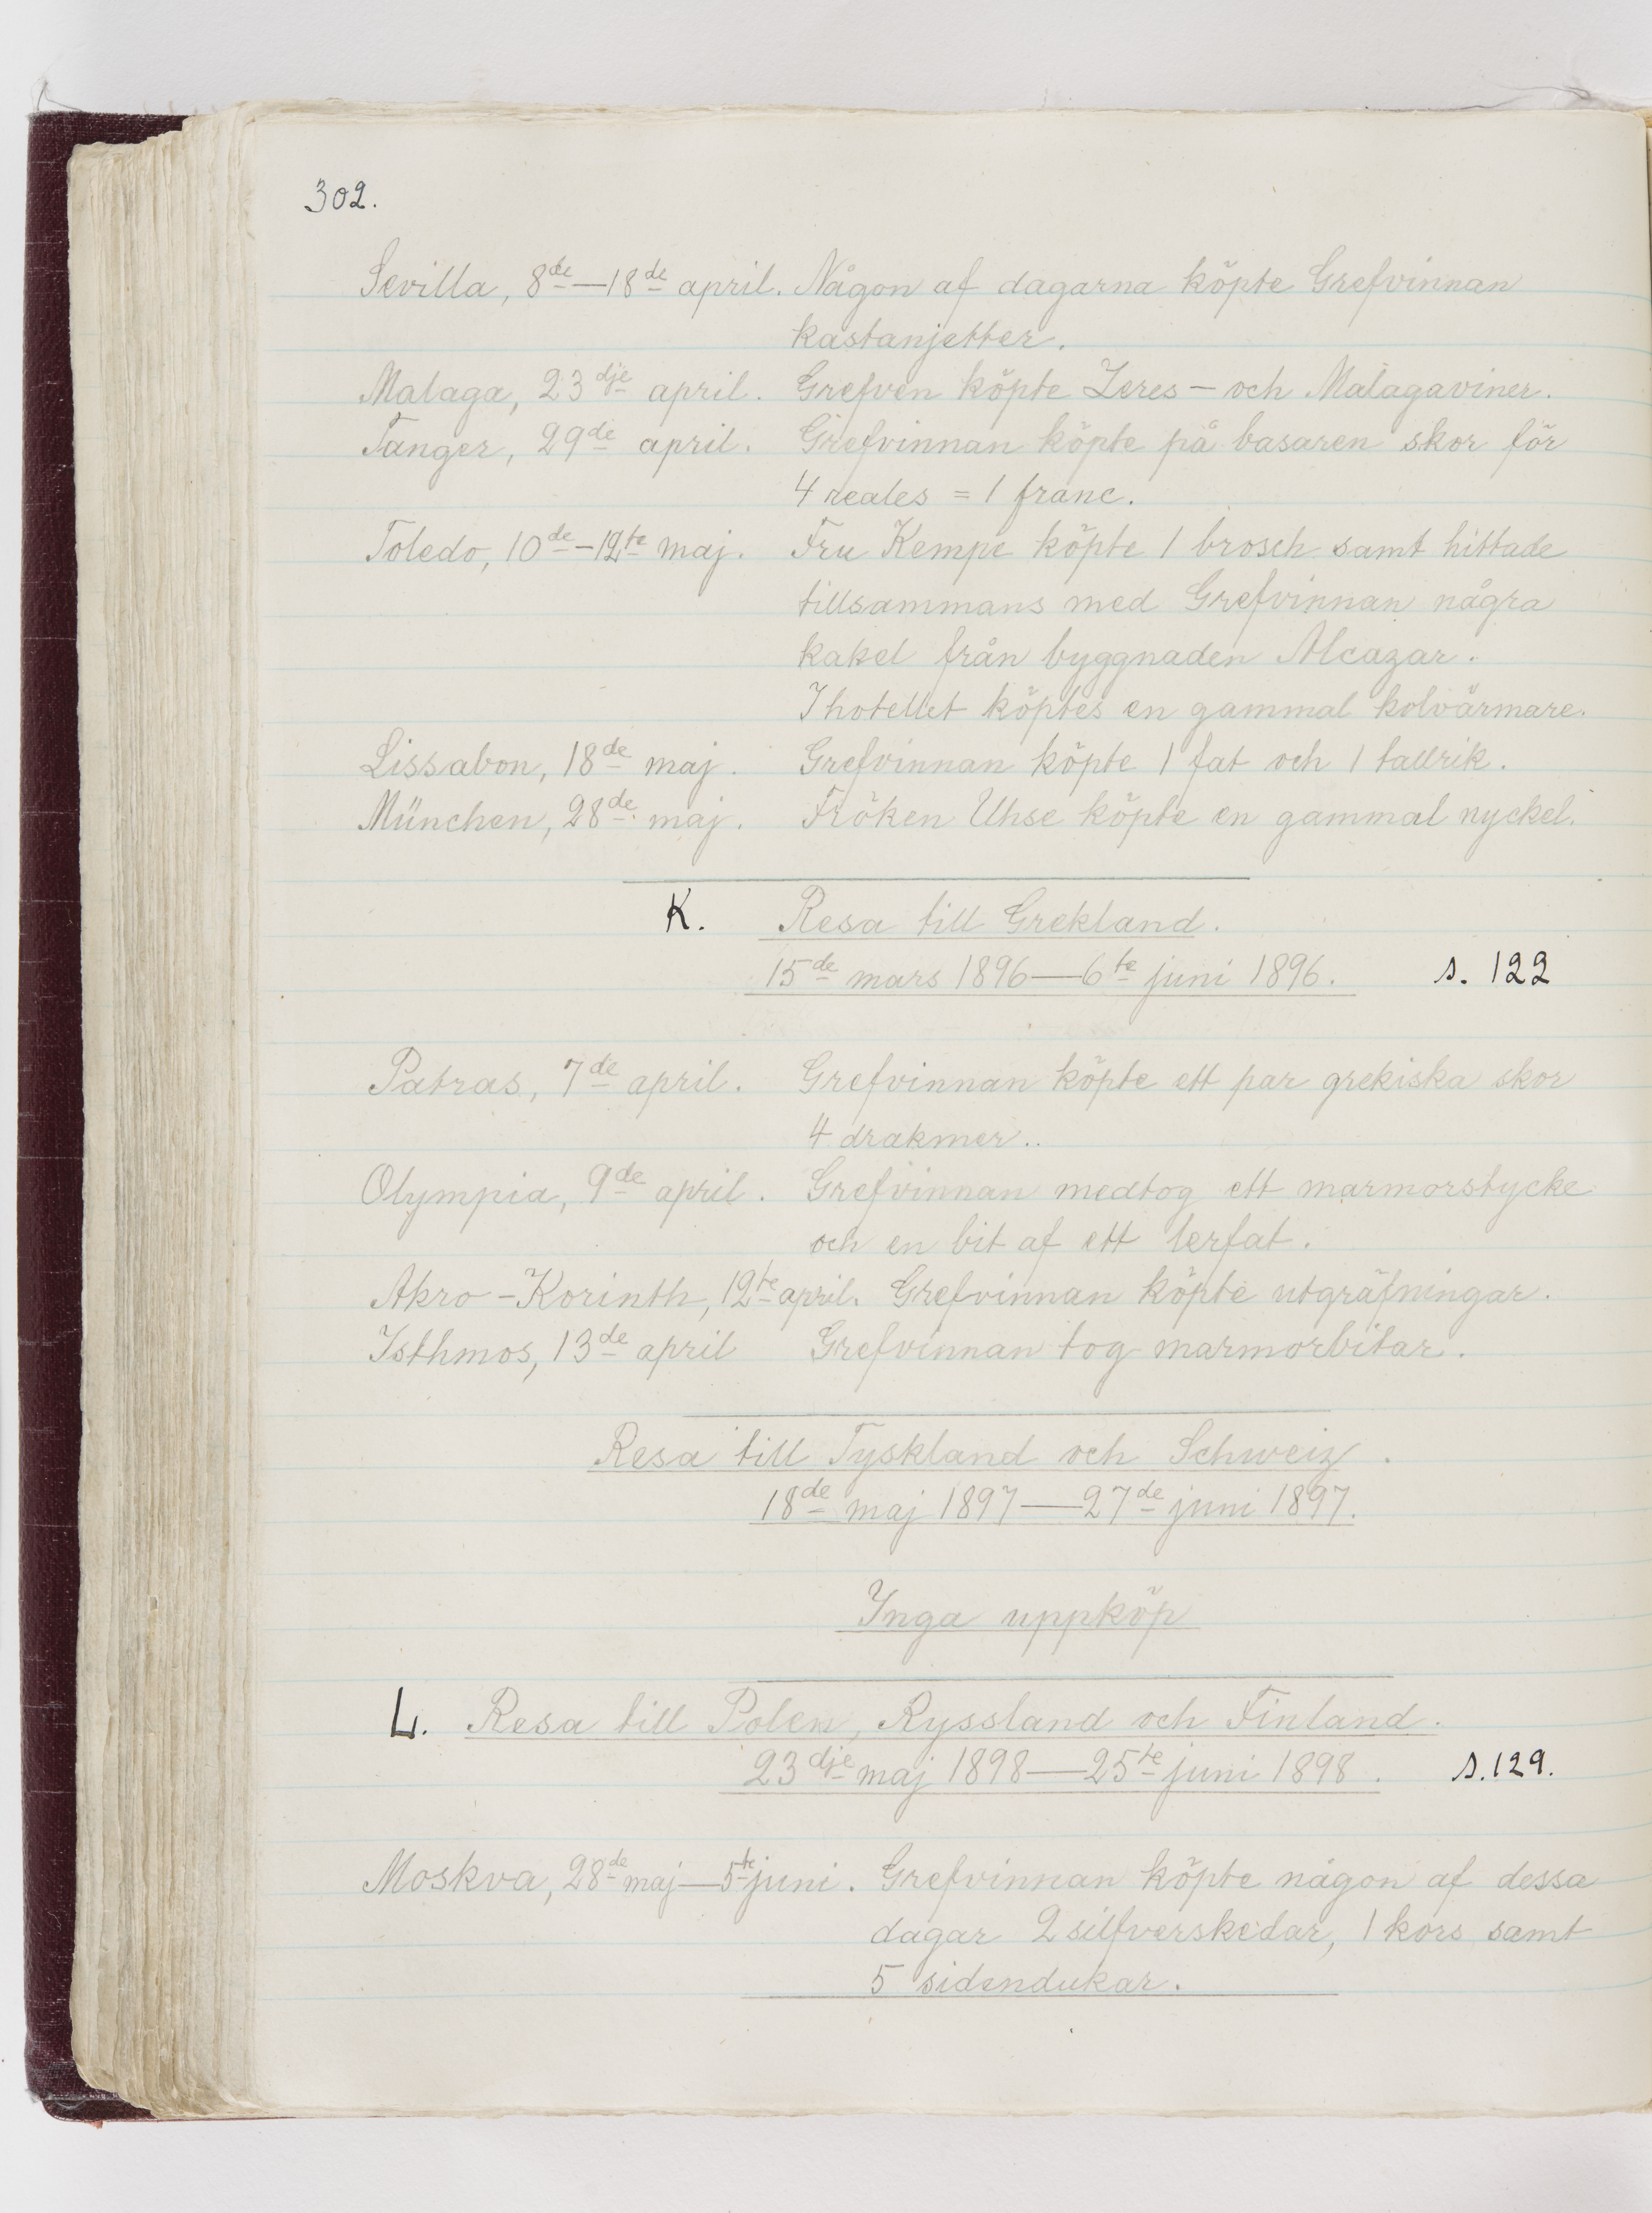 302.
Sevilla, 8de—18de april. Någon af dagarna köpte Grefvinnan
kastanjetter.
Malaga, 23dje april. Grefven köpte Xeres- och Malagaviner.
Tanger, 29de april. Grefvinnan köpte på basaren skor för
4 reales = 1 franc.
Toledo, 10de-12te maj. Fru Kempe köpte 1 brosch samt hittade
tillsammans med Grefvinnan några
kakel från byggnaden Alcazar.
I hotellet köptes en gammal kolvärmare.
Lissabon, 18de maj. Grefvinnan köpte 1 fat och 1 tallrik.
München, 28de maj. Fröken Uhse köpte en gammal nyckel.
K. Resa till Grekland.
15de mars 1896—6te juni 1896. s. 122
Patras, 7de april. Grefvinnan köpte ett par grekiska skor
4 drakmer..
Olympia, 9de april. Grefvinnan medtog ett marmorstycke
och en bit af ett lerfat.
Akro-Korinth, 12te april. Grefvinnan köpte utgräfningar.
Isthmos, 13de april Grefvinnan tog marmorbitar.
Resa till Tyskland och Schweiz.
18de maj 1897—27de juni 1897.
Inga uppköp
L. Resa till Polen, Ryssland och Finland.
23dje maj 1898—25te juni 1898. s. 129.
Moskva, 28de maj—5te juni. Grefvinnan köpte någon af dessa
dagar 2 silfverskedar, 1 kors samt
5 sidendukar.